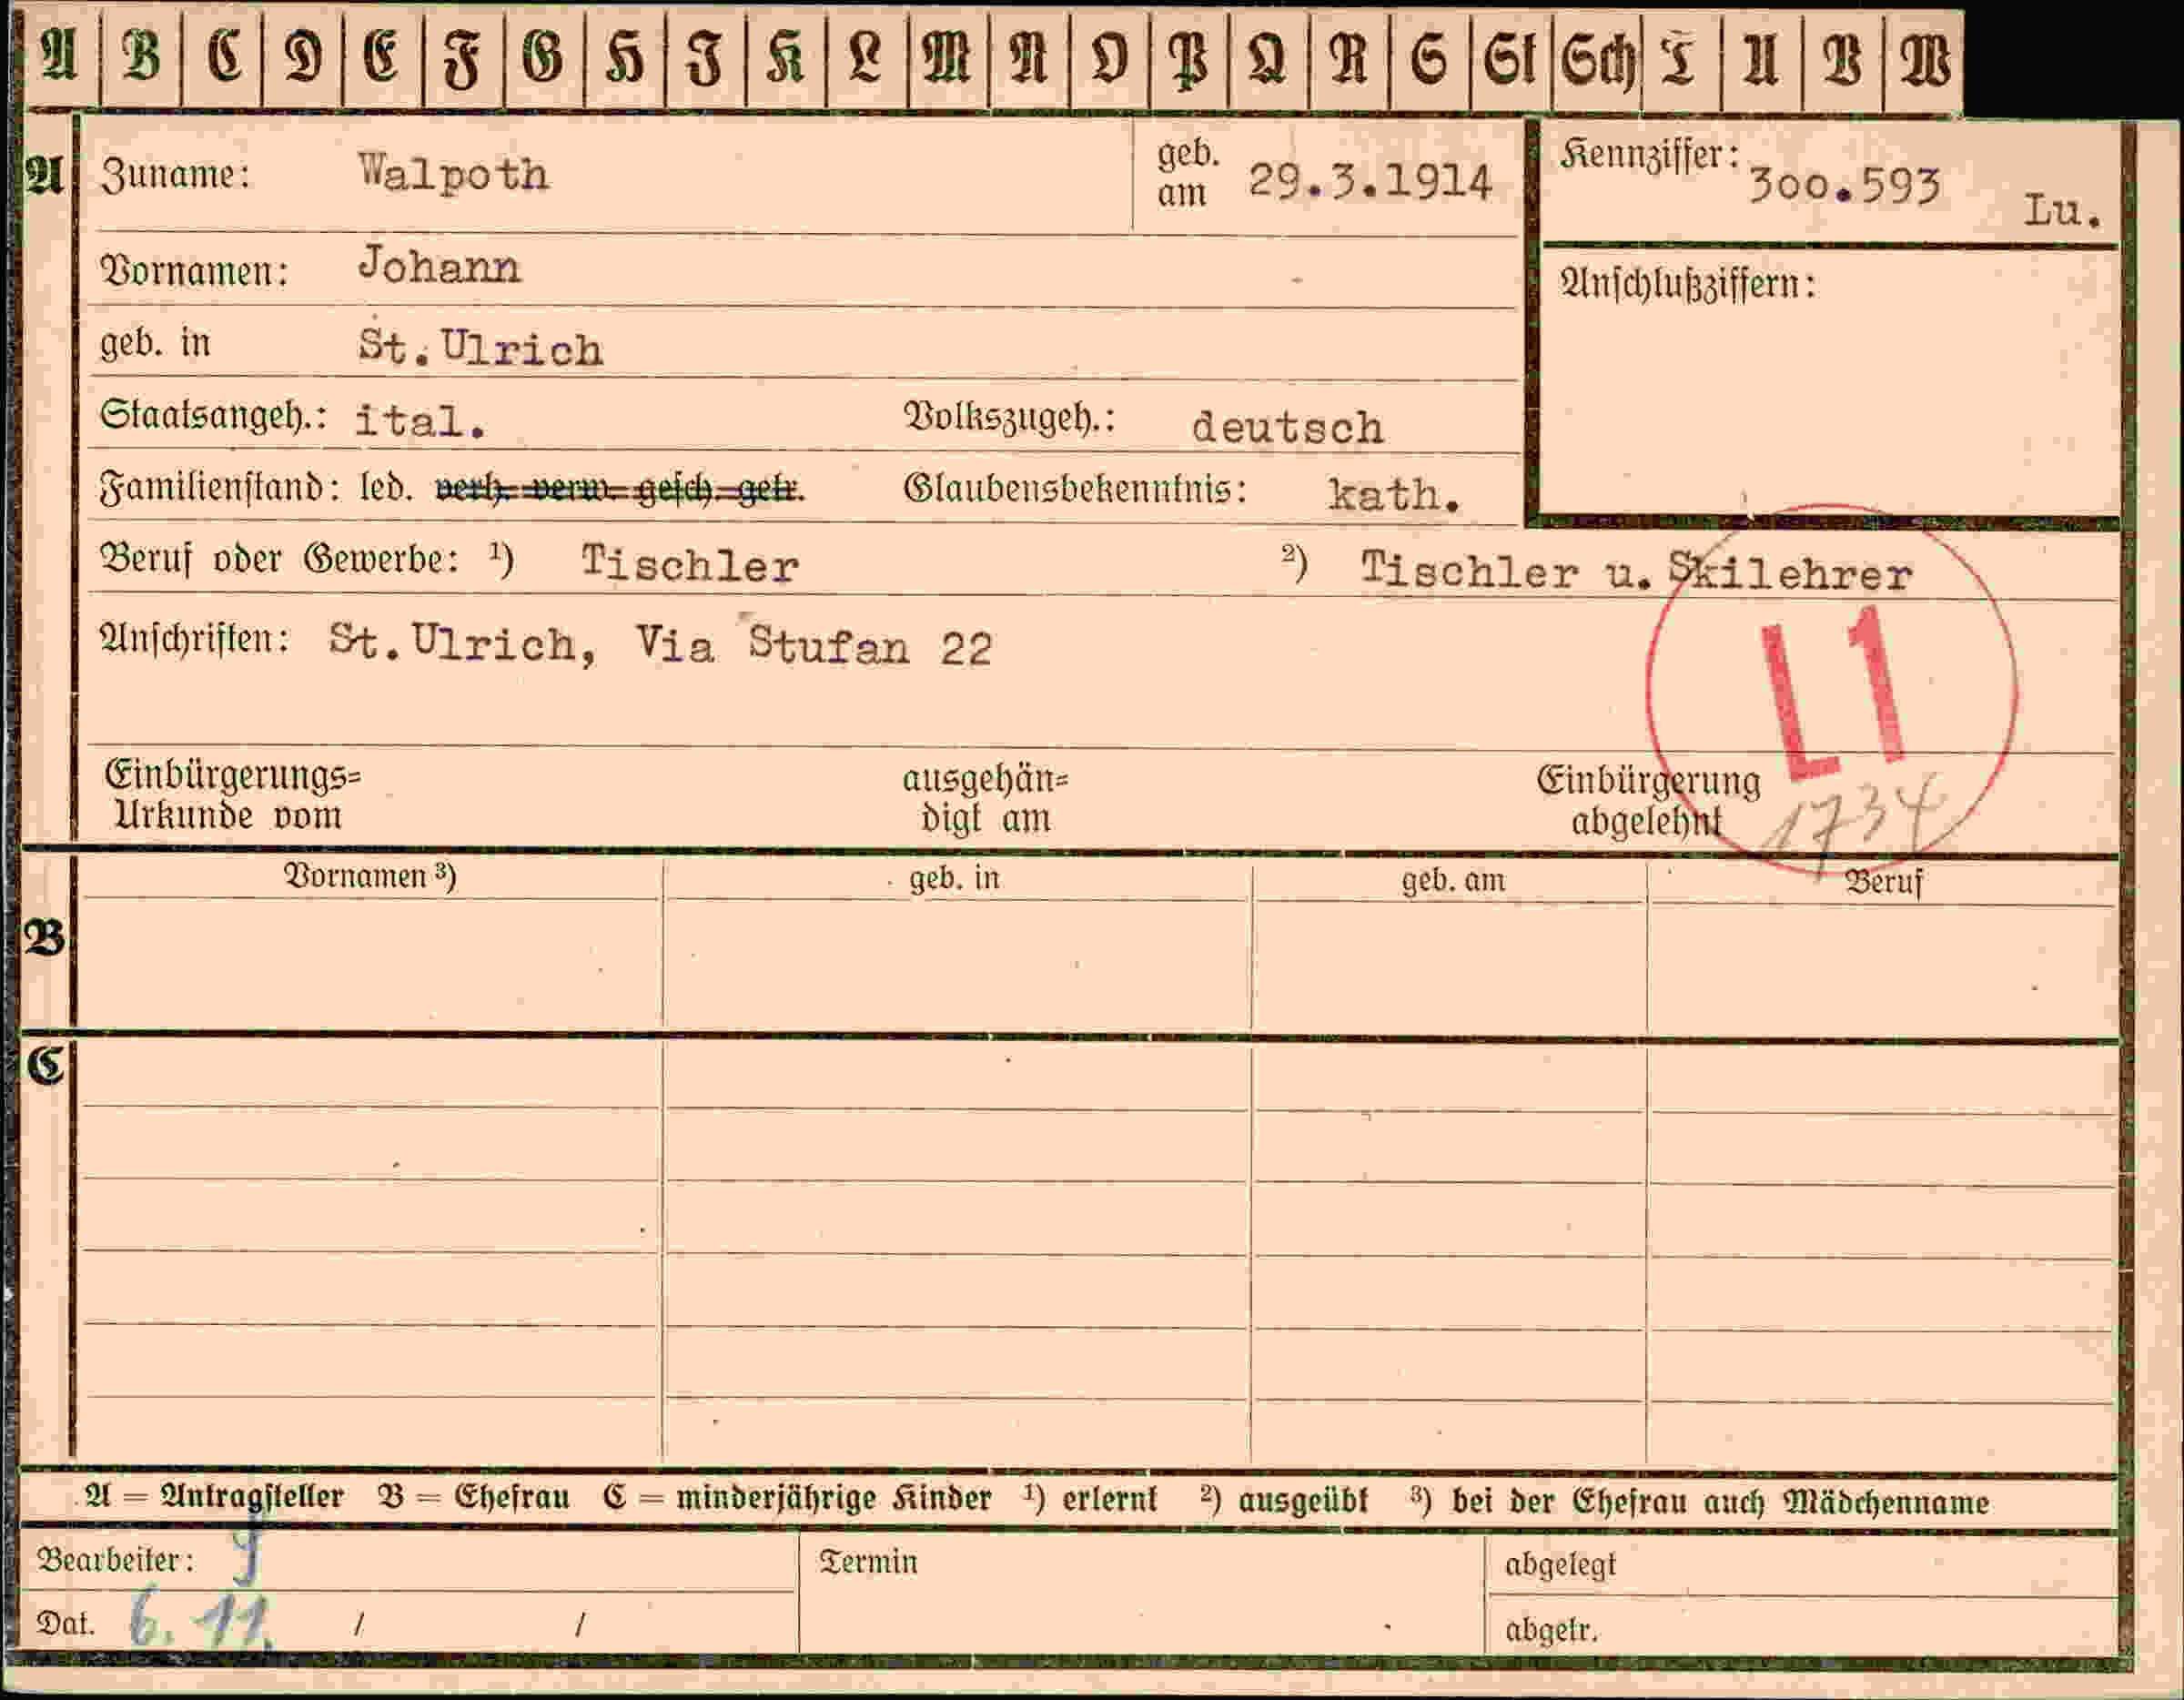 A B C D E F G H I K L M N O P Q R S St Sch T U V W
A Zuname: Walpoth geb. am 29.3.1914 Kennziffer: 300.593 Lu.
Vornamen: Johann Anschlußziffern:
geb. in St. Ulrich
Staatsangeh.: ital. Volkszugeh.: deutsch
Familienstand: led. verh. verw. gesch. getr. Glaubensbekenntnis: kath.
Beruf oder Gewerbe: ¹) Tischler ²) Tischler u. Skilehrer
Anschriften: St. Ulrich, Via Stufan 22
L1
Einbürgerungs= ausgehän= Einbürgerung
Urkunde vom digt am abgelehnt 1734
Vornamen ³) geb. in geb. am Beruf
B
C
A = Antragsteller B = Ehefrau C = minderjährige Kinder ¹) erlernt ²) ausgeübt ³) bei der Ehefrau auch Mädchenname
Bearbeiter: Termin abgelegt
Dat. 6. 11. / / abgetr.